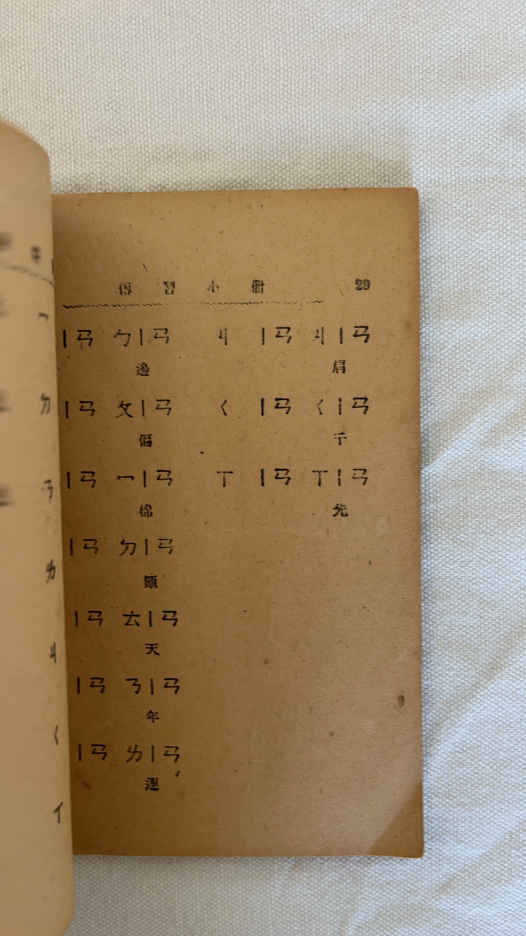 傳習小冊 29
ㄧㄢ ㄅㄧㄢ ㄐ ㄧㄢ ㄐㄧㄢ
邊 肩
ㄧㄢ ㄆㄧㄢ ㄑ ㄧㄢ ㄑㄧㄢ
偏 千
ㄧㄢ ㄇㄧㄢ ㄒ ㄧㄢ ㄒㄧㄢ
棉 先
ㄧㄢ ㄉㄧㄢ
顚
ㄧㄢ ㄊㄧㄢ
天
ㄧㄢ ㄋㄧㄢ
年
ㄧㄢ ㄌㄧㄢ
連